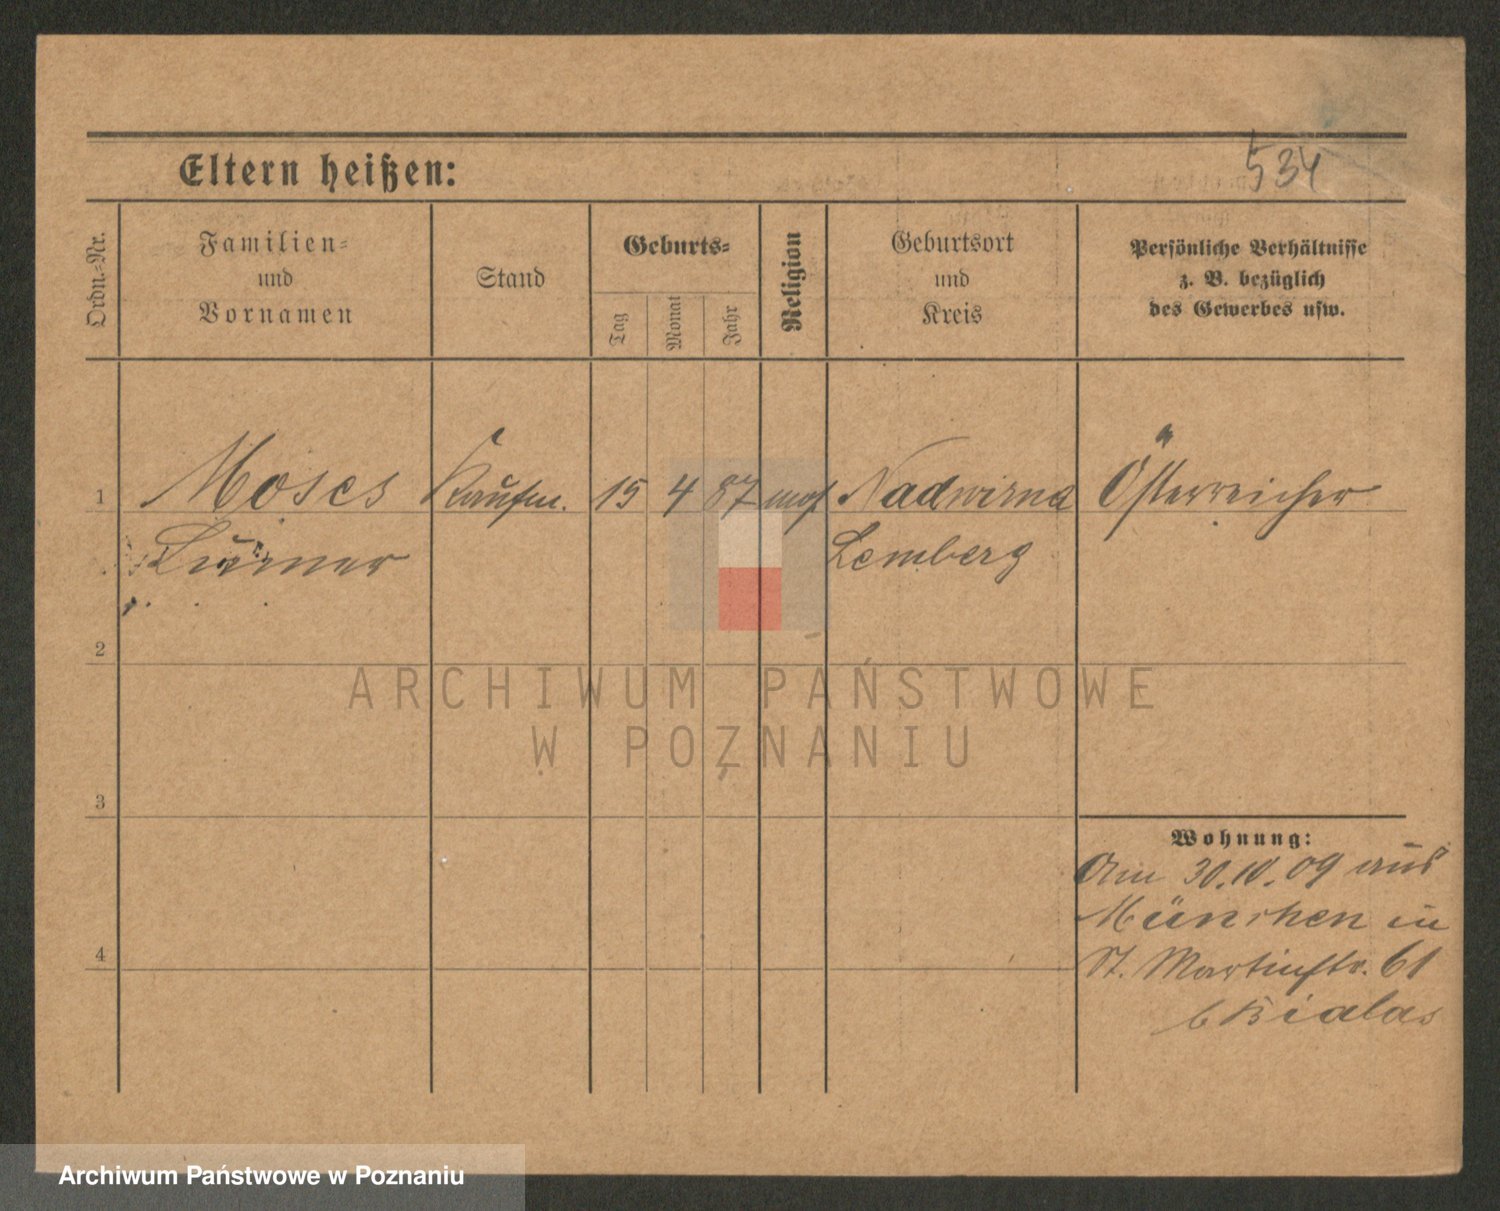 Eltern heißen:
534
Ordn.=Nr.
Familien=
und
Vornamen
Stand
Geburts=
Tag
Monat
Jahr
Religion
Geburtsort
und
Kreis
Persönliche Verhältnisse
z. B. bezüglich
des Gewerbes usw.
1 Moses Kaufm. 15 4 87 mos Nadwirna Österreicher
Lemberg
2
3
4
Wohnung:
Am 30.10.09 aus
München in
St. Martinstr. 61
b Bialas
ARCHIWUM PAŃSTWOWE
W POZNANIU
Archiwum Państwowe w Poznaniu